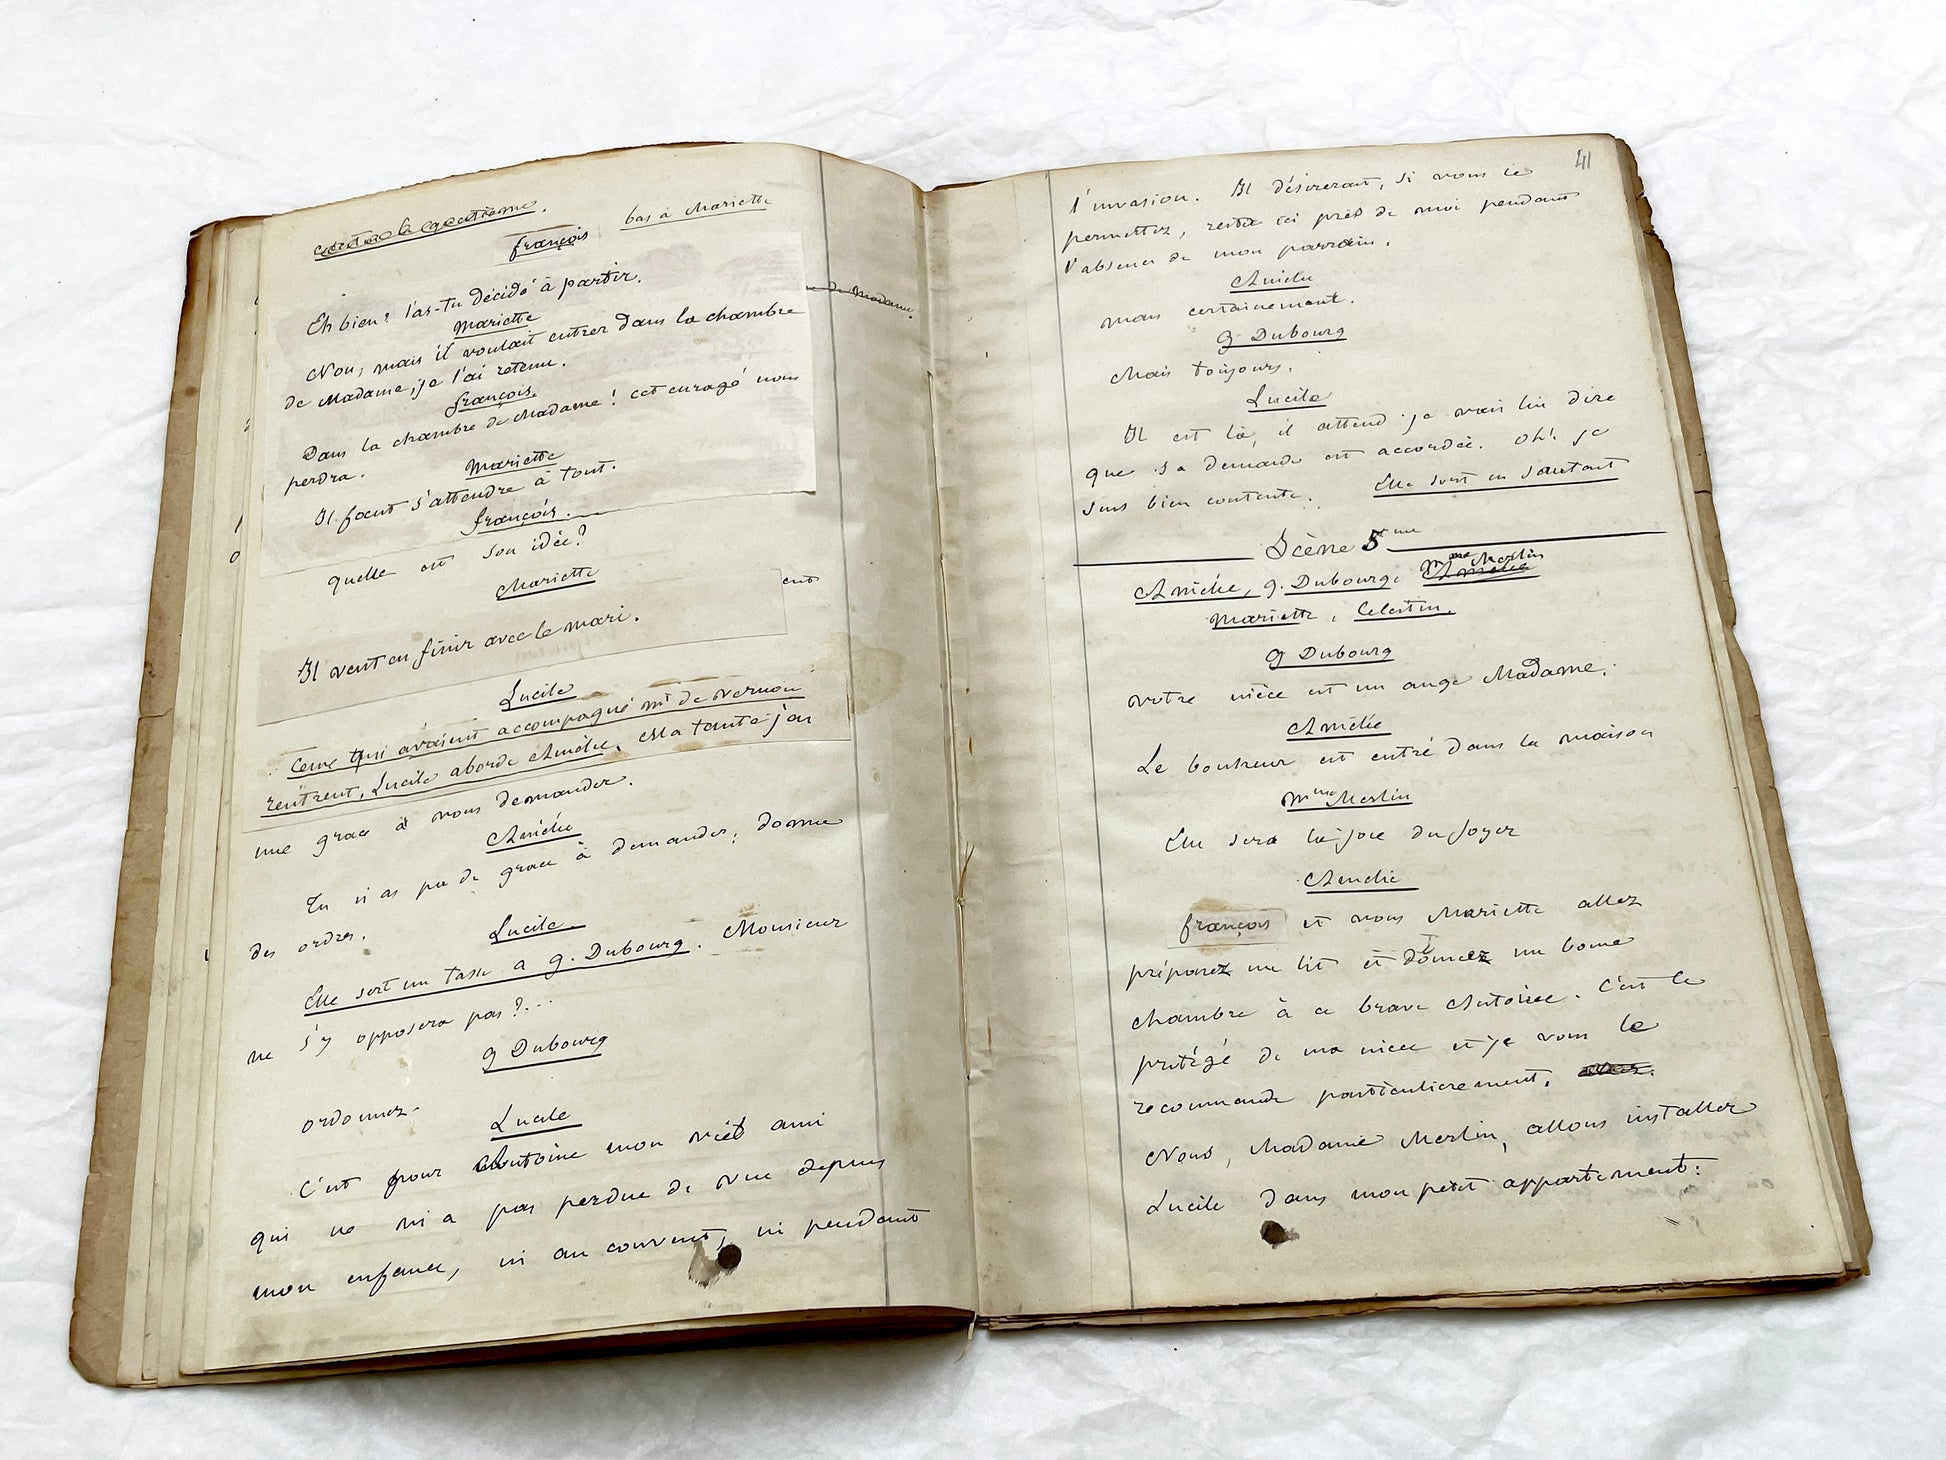 françois bas à Mariette
Eh bien? l'as-tu décidé à partir.
Mariette
Non, mais il voulait entrer dans la chambre
de Madame, je l'ai retenu.
françois
Dans la chambre de Madame! cet enragé nous
perdra.
Mariette
Il faut s'attendre à tout.
françois.
quelle est son idée?
Mariette
Il veut en finir avec le mari.
Lucile
Ceux qui avaient accompagné Mr de Vernon
rentrent, Lucile aborde Amélie. Ma tante j'ai
une grace à vous demander.
Amélie
Tu n'as pas de grace à demander; donne
des ordres.
Lucile
Elle sert un tasse a g. Dubourg. Monsieur
ne s'y opposera pas?...
g Dubourg
ordonnez.
Lucile
C'est pour Antoine mon vieil ami
qui ne m'a pas perdue de vue depuis
mon enfance, ni au couvent, ni pendant
de Madame.
ent
41
l'invasion. Il désirerait, si vous le
permettez, rester ici près de moi pendant
l'absence de mon parrain.
Amélie
mais certainement.
g Dubourg
Mais toujours.
Lucile
Il est là, il attend je vais lui dire
que sa demande est accordée. Oh! je
suis bien contente. Elle sort en sautant
Scène 5me
Amélie, g. Dubourg, Mme Merlin
Mariette, Celestin.
g Dubourg
votre nièce est un ange Madame.
Amélie
Le bonheur est entré dans la maison
Mme Merlin
Elle sera la joie du foyer
Amélie
françois et vous Mariette allez
préparez un lit et donnez une bonne
chambre à ce brave Antoine. C'est le
protégé de ma niece et je vous le
recommande particulierement.
Nous, Madame Merlin, allons installer
Lucile dans mon petit appartement.